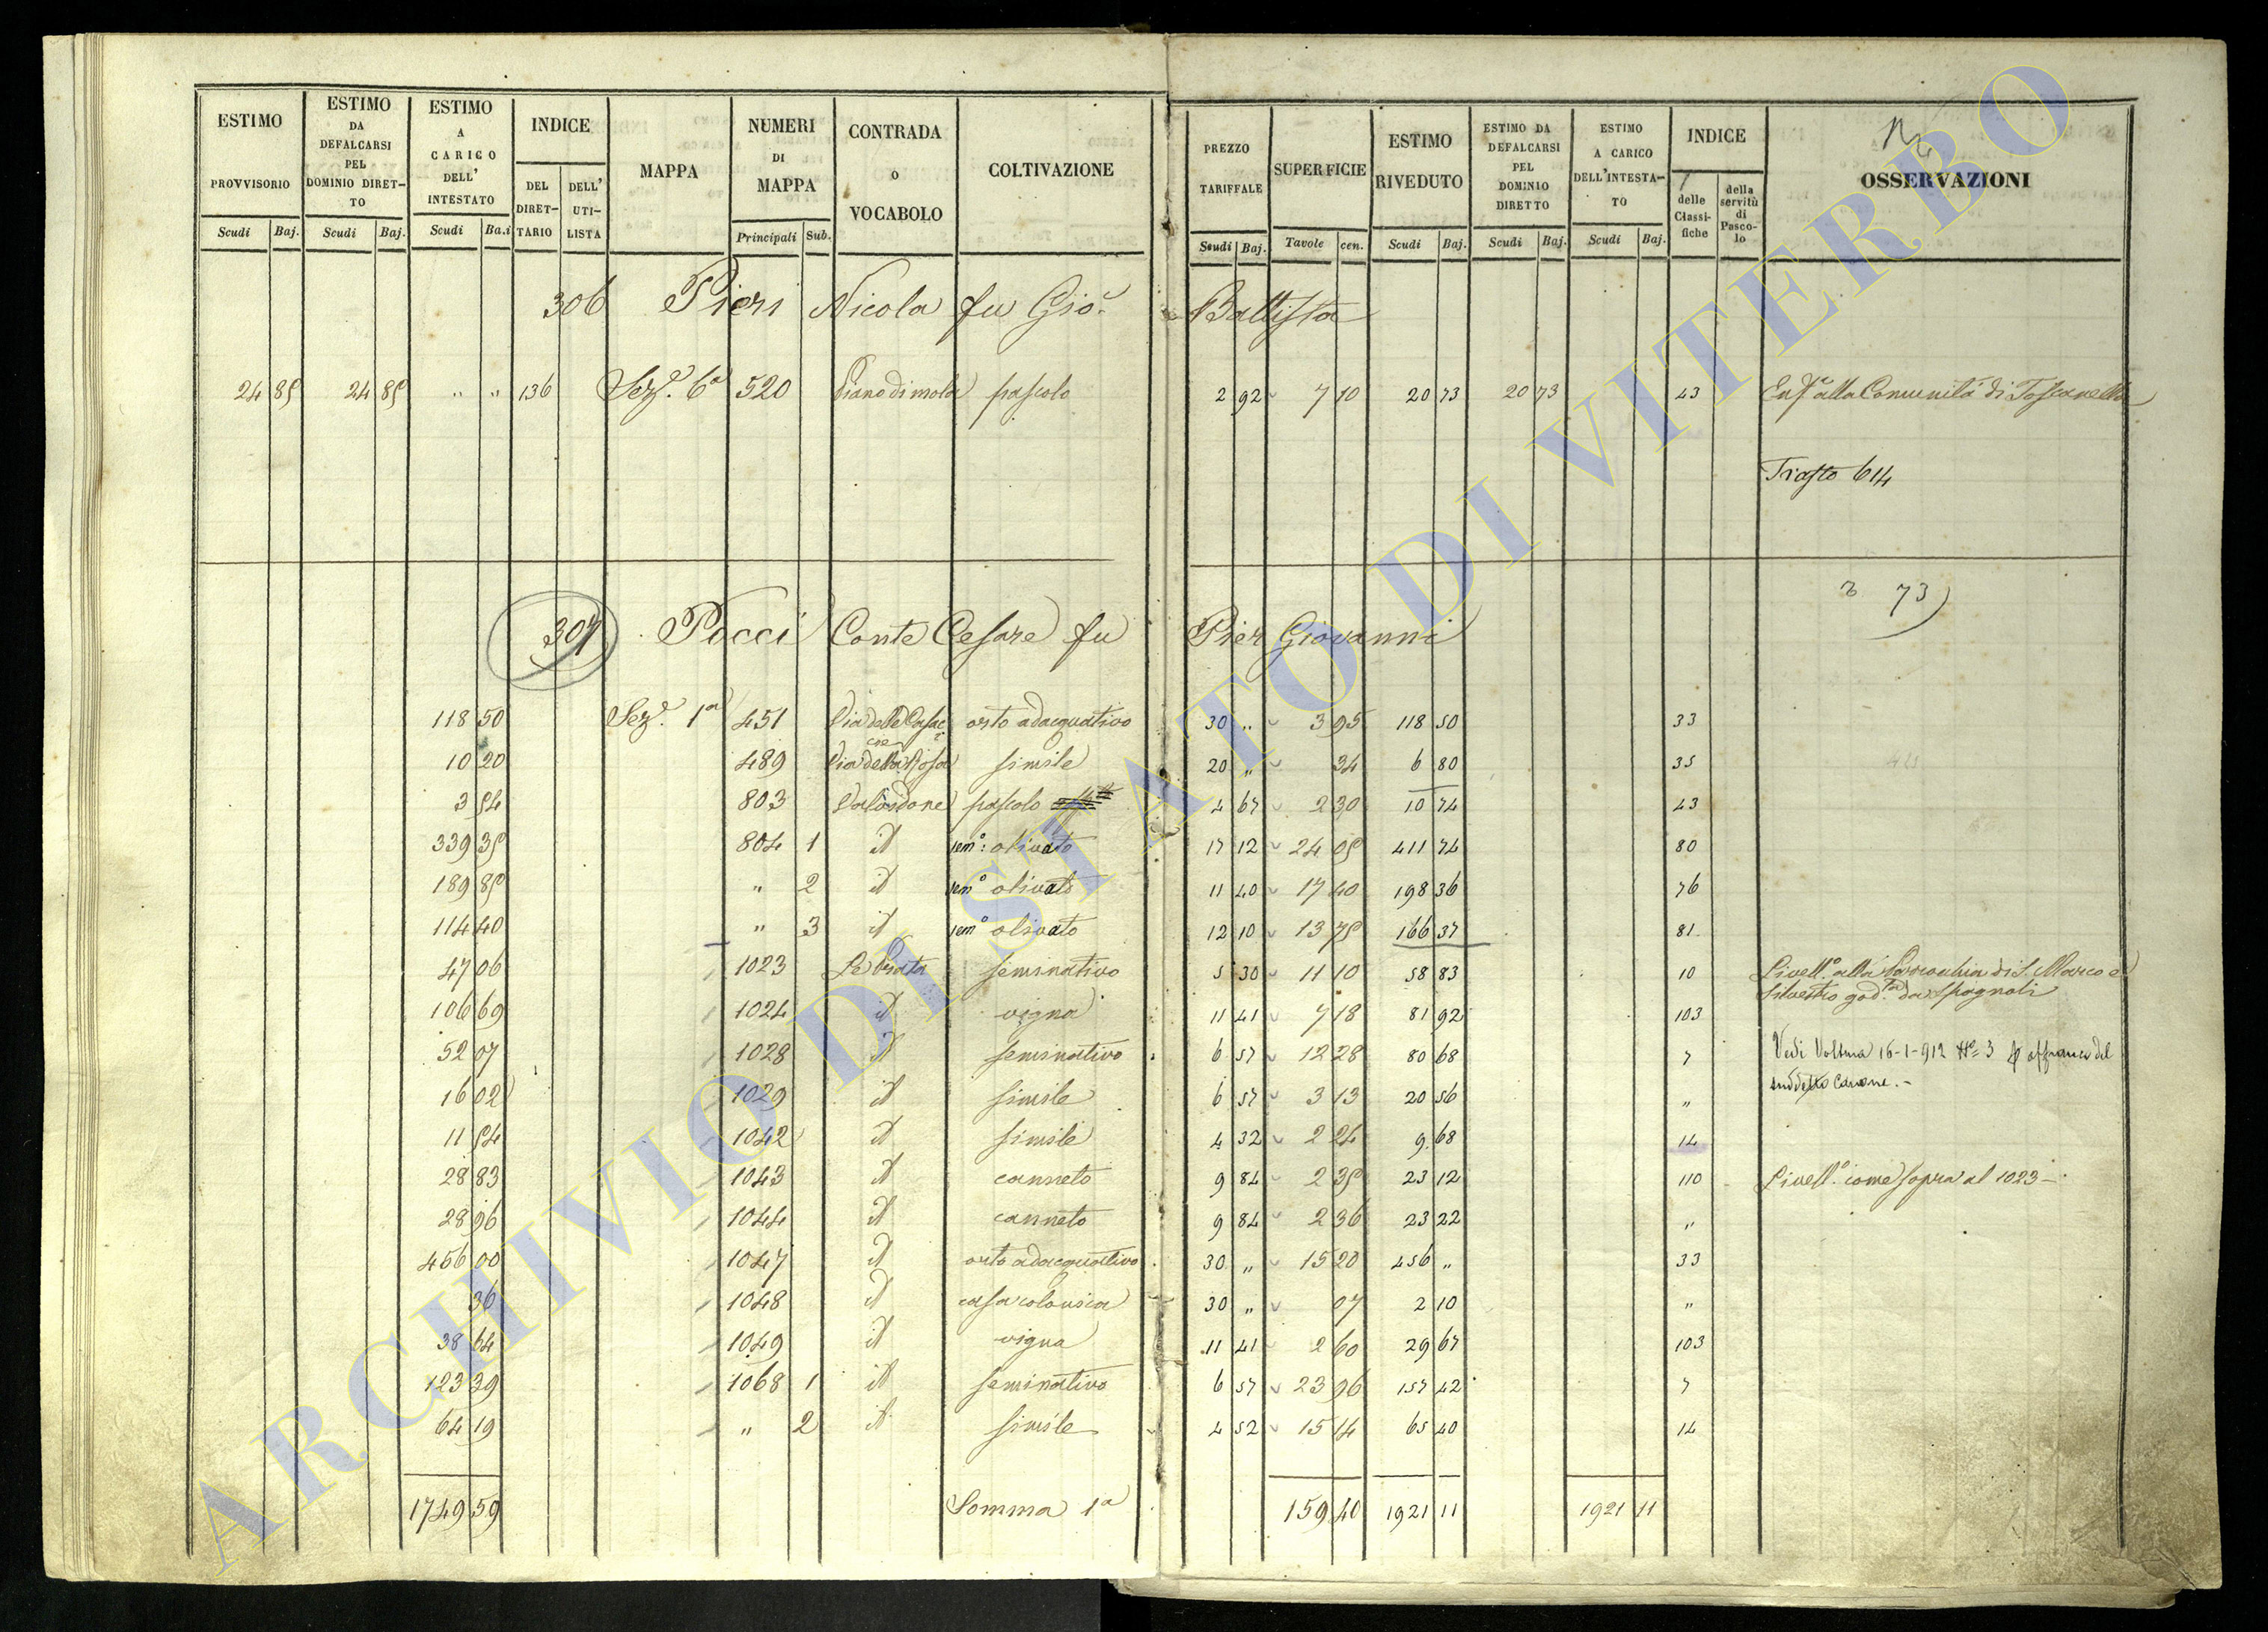 ESTIMO PROVVISORIO
ESTIMO DA DEFALCARSI PEL DOMINIO DIRET-TO
ESTIMO A CARICO DELL' INTESTATO
INDICE
DEL DIRET-TARIO
DELL' UTI-LISTA
MAPPA
NUMERI DI MAPPA
CONTRADA O VOCABOLO
COLTIVAZIONE
PREZZO TARIFFALE
SUPERFICIE
ESTIMO RIVEDUTO
ESTIMO DA DEFALCARSI PEL DOMINIO DIRETTO
ESTIMO A CARICO DELL'INTESTA-TO
INDICE
delle Classi-fiche
della servitù di Pasco-lo
OSSERVAZIONI
Scudi Baj. Scudi Baj. Scudi Ba.i Principali Sub. Scudi Baj. Tavole cen. Scudi Baj. Scudi Baj. Scudi Baj.
306 Pieri Nicola fu Gio. Battista
24 85 24 85 " " 136 Sez.e 6a 520 Piano di mola pascolo 2 92 7 10 20 73 20 73 43 Enf.a alla Comunità di Toscanella
Triasto 614
73)
307 Pocci Conte Cesare fu Pier Giovanni
118 50 Sez.e 1a 451 Via delle Casac.e orto adacquativo 30 " 3 95 118 50 33
10 20 489 Via della Rosa simile 20 " 34 6 80 35
3 54 803 Valardone pascolo 4 67 2 30 10 74 43
339 35 804 1 id sem.o olivato 17 12 24 05 411 74 80
189 85 " 2 id sem.o olivato 11 40 17 40 198 36 76
114 40 " 3 id sem.o olivato 12 10 13 75 166 37 81
47 06 1023 Le Prata seminativo 5 30 11 10 58 83 10 Livell.o alla Parrocchia di S. Marco e
Silvestro god.ta da Spagnoli
106 69 1024 id vigna 11 41 7 18 81 92 103
52 07 1028 id seminativo 6 57 12 28 80 68 7 Vedi Voltura 16-1-912 No 3 affranco del
suddetto canone.-
16 02 1029 id simile 6 57 3 13 20 56 "
11 54 1042 id simile 4 32 2 24 9 68 14
28 83 1043 id canneto 9 84 2 35 23 12 110 Livell.o come sopra al 1023-
28 96 1044 id canneto 9 84 2 36 23 22 "
456 00 1047 id orto adacquativo 30 " 15 20 456 " 33
36 1048 id casa colonica 30 " 07 2 10 "
38 64 1049 id vigna 11 41 2 60 29 67 103
123 39 1068 1 id seminativo 6 57 23 96 157 42 7
64 19 " 2 id simile 4 52 15 14 65 40 14
1749 59 Somma 1a 159 40 1921 11 1921 11
ARCHIVIO DI STATO DI VITERBO